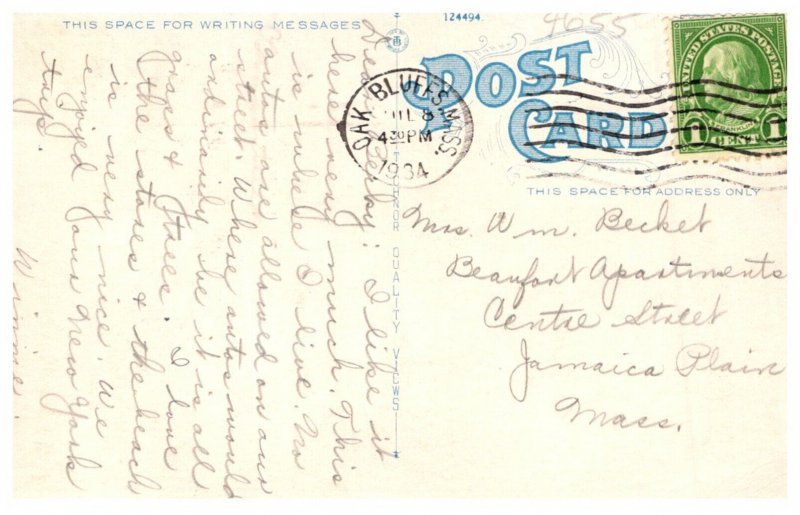 THIS SPACE FOR WRITING MESSAGES
Dear : I like it
here very much. This
is where I live. No
autos are allowed on our
street. Where autos would
ordinarily be it is all
grass & trees. I love
the stores & the beach
is very nice. We
enjoyed your New York
trip.
Winnie.
TICHNOR QUALITY VIEWS
124494
4655
POST
CARD
OAK BLUFFS, MASS.
JUL 8
4 30 PM
1934
UNITED STATES POSTAGE
FRANKLIN
1 CENT 1
THIS SPACE FOR ADDRESS ONLY
Mrs. Wm. Becket
Beaufort Apartments
Centre Street
Jamaica Plain
Mass.